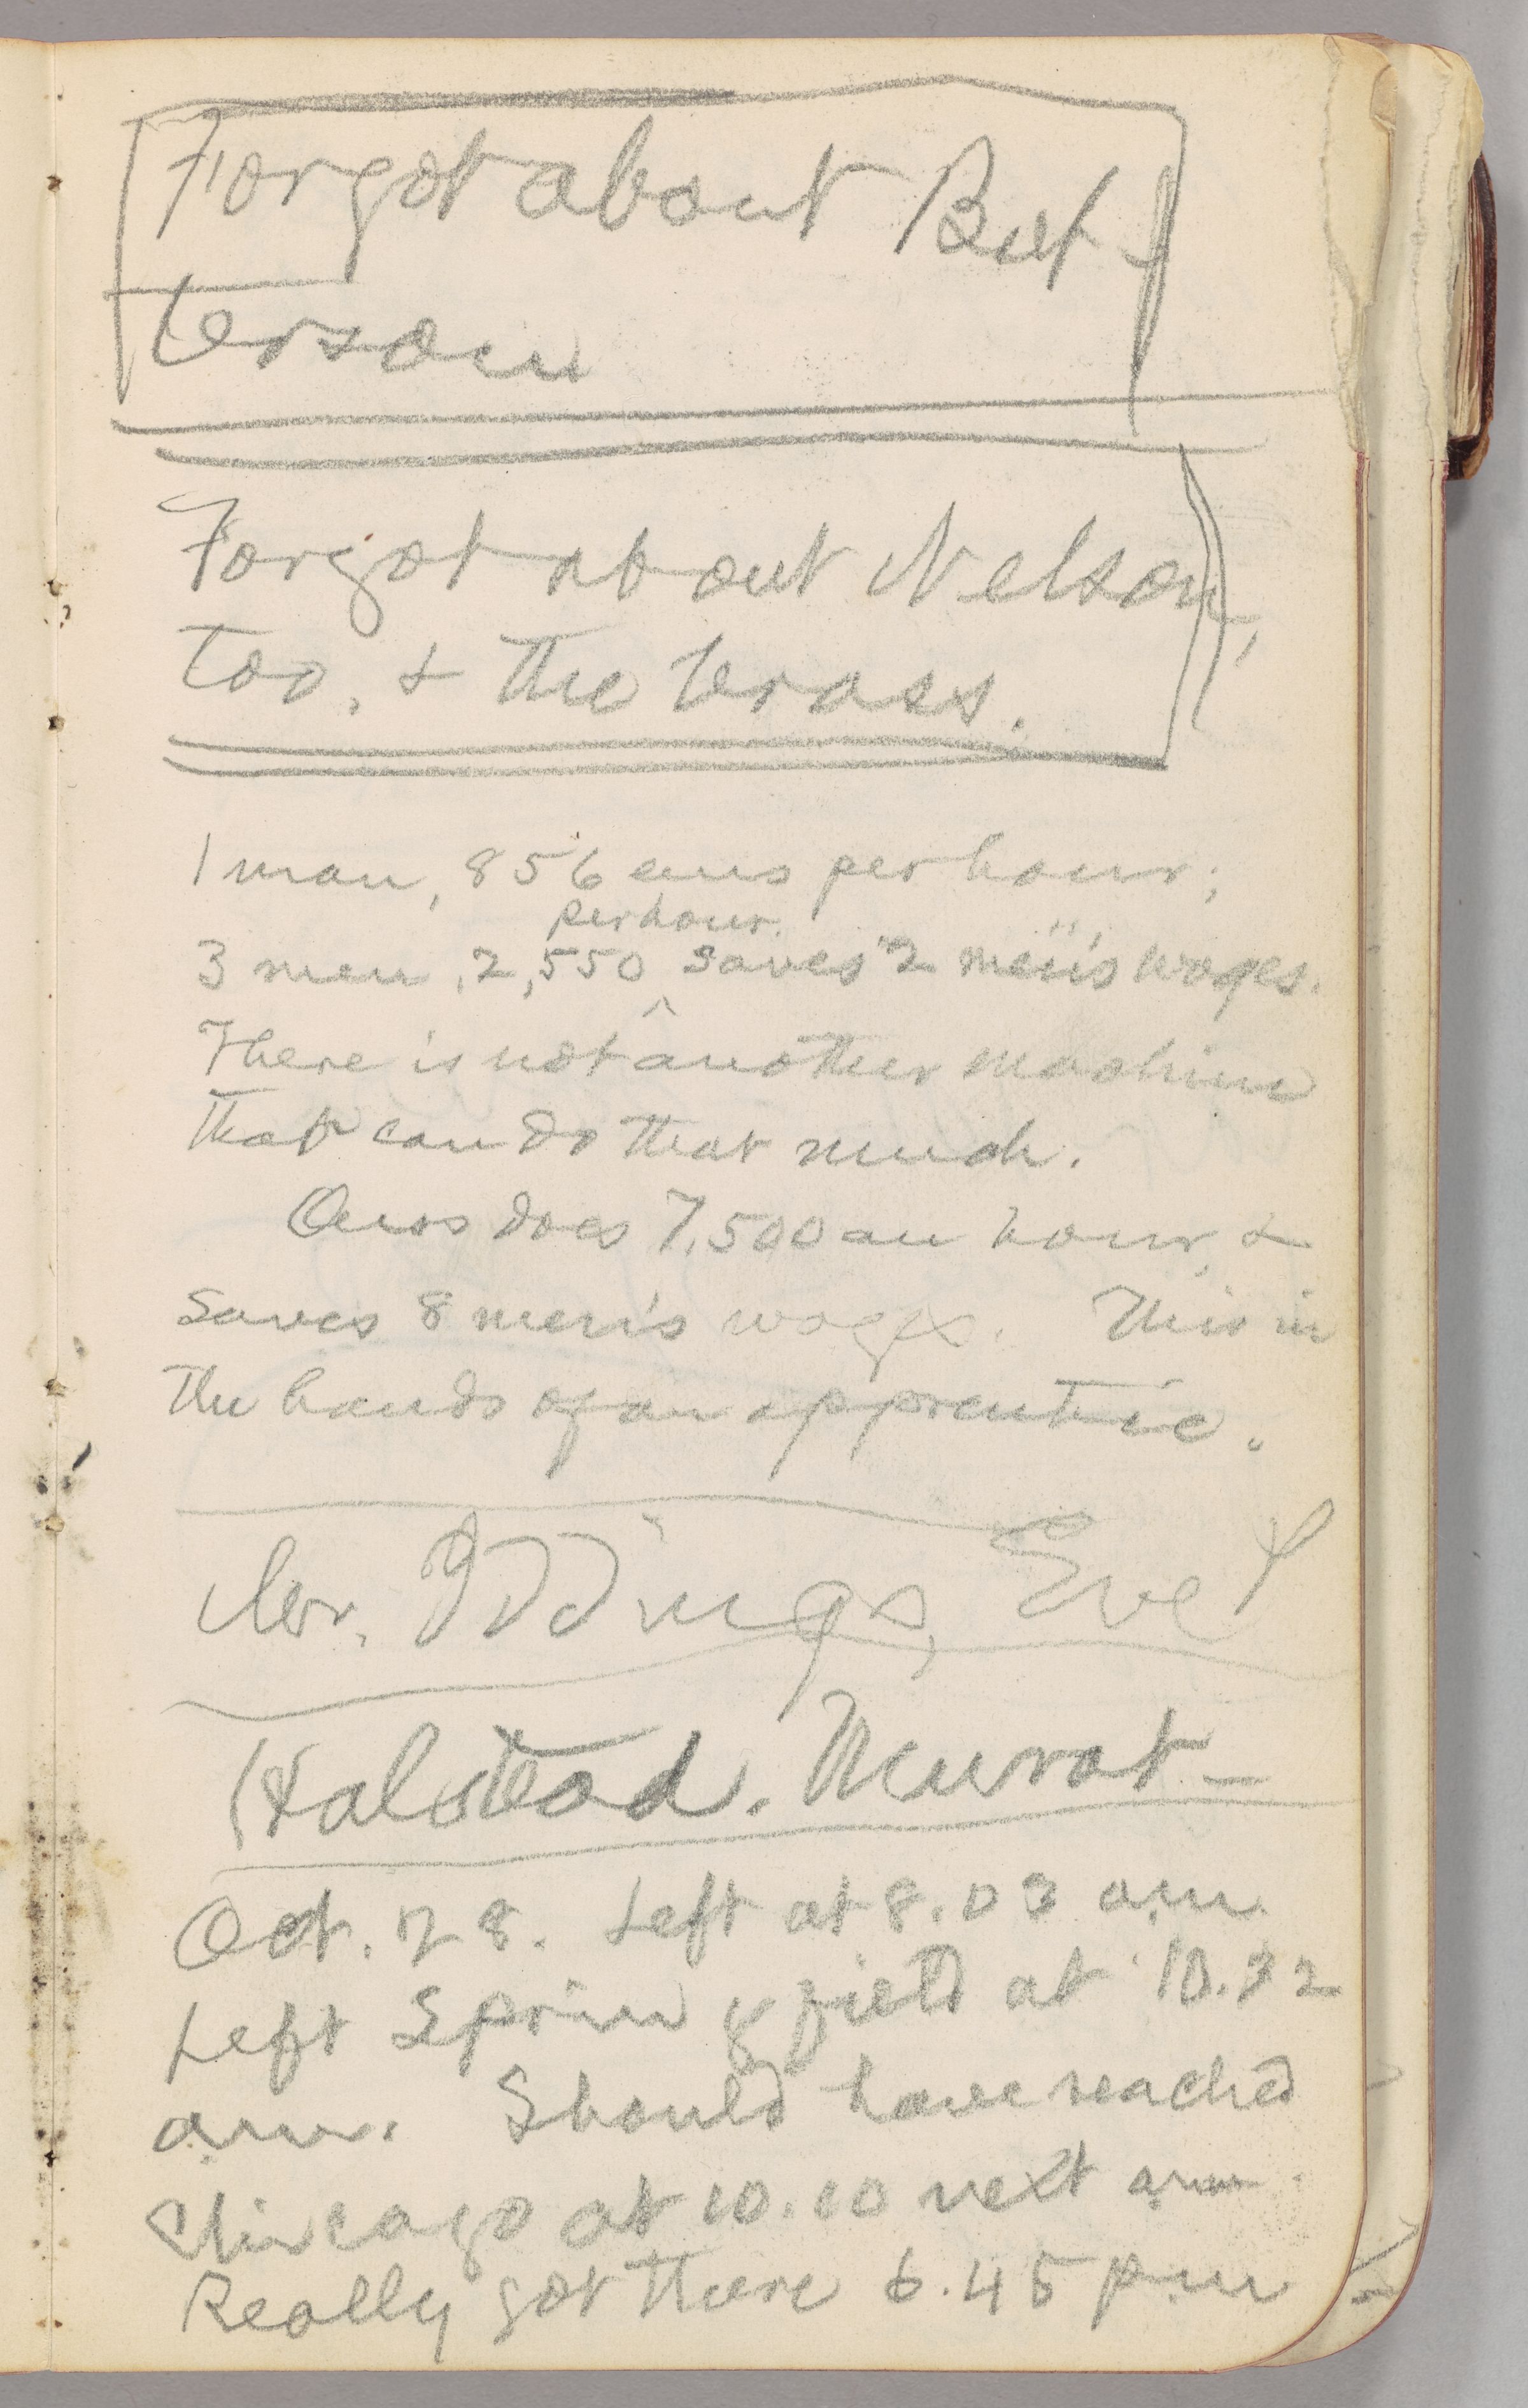 Forgot about But-
terson
Forgot about Nelson,
too, & the brass.
1 man, 856 ems per hour;
per hour.
3 men, 2,550 saves 2 men's wages.
There is not another machine
that can do that much.
Ours does 7,500 an hour, &
saves 8 men's wages. This in
the hands of an apprentice.
Mr. Iddings,
Halstead. Murat—
Oct. 28. Left at 8.03 am
Left Springfield at 10.32
am. Should have reached
Chicago at 10.10 next am.
Really got there 6.45 pm